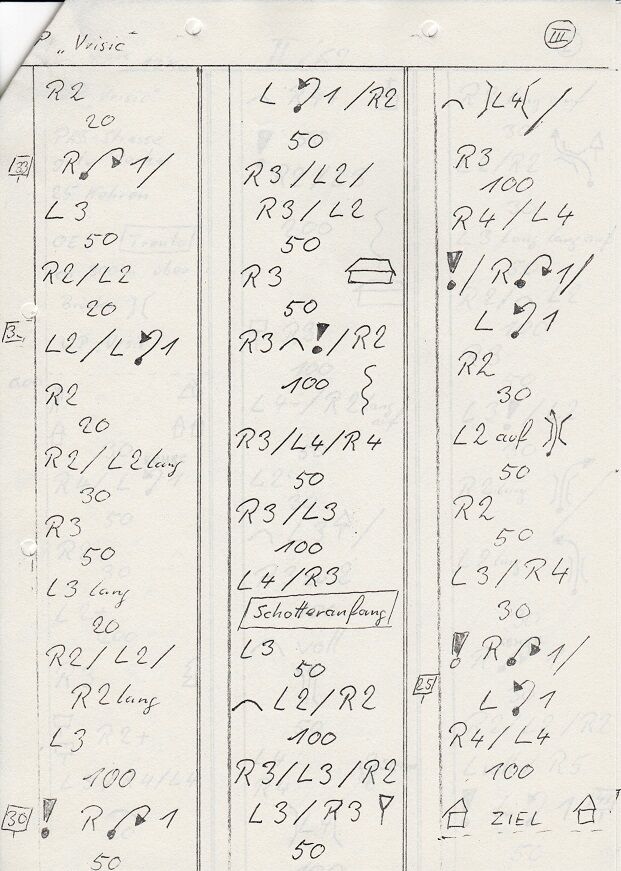 P „Vrisic"
III
R2
20
33
R 1/
L3
50
R2/L2
20
3
L2/L 1
R2
20
R2/L2 lang
30
R3
50
L3 lang
20
R2/L2/
R2 lang
L3
100
30
! R 1
50
L 1/R2
50
R3/L2/
R3/L2
50
R3
50
R3 ! /R2
100
R3/L4/R4
50
R3/L3
100
L4/R3
Schotteranfang
L3
50
L2/R2
100
R3/L3/R2
L3/R3
50
L4 /
R3
100
R4/L4
! / R 1/
L 1
R2
30
L2 auf
50
R2
50
L3/R4
30
! R 1/
25
L 1
R4/L4
100
ZIEL